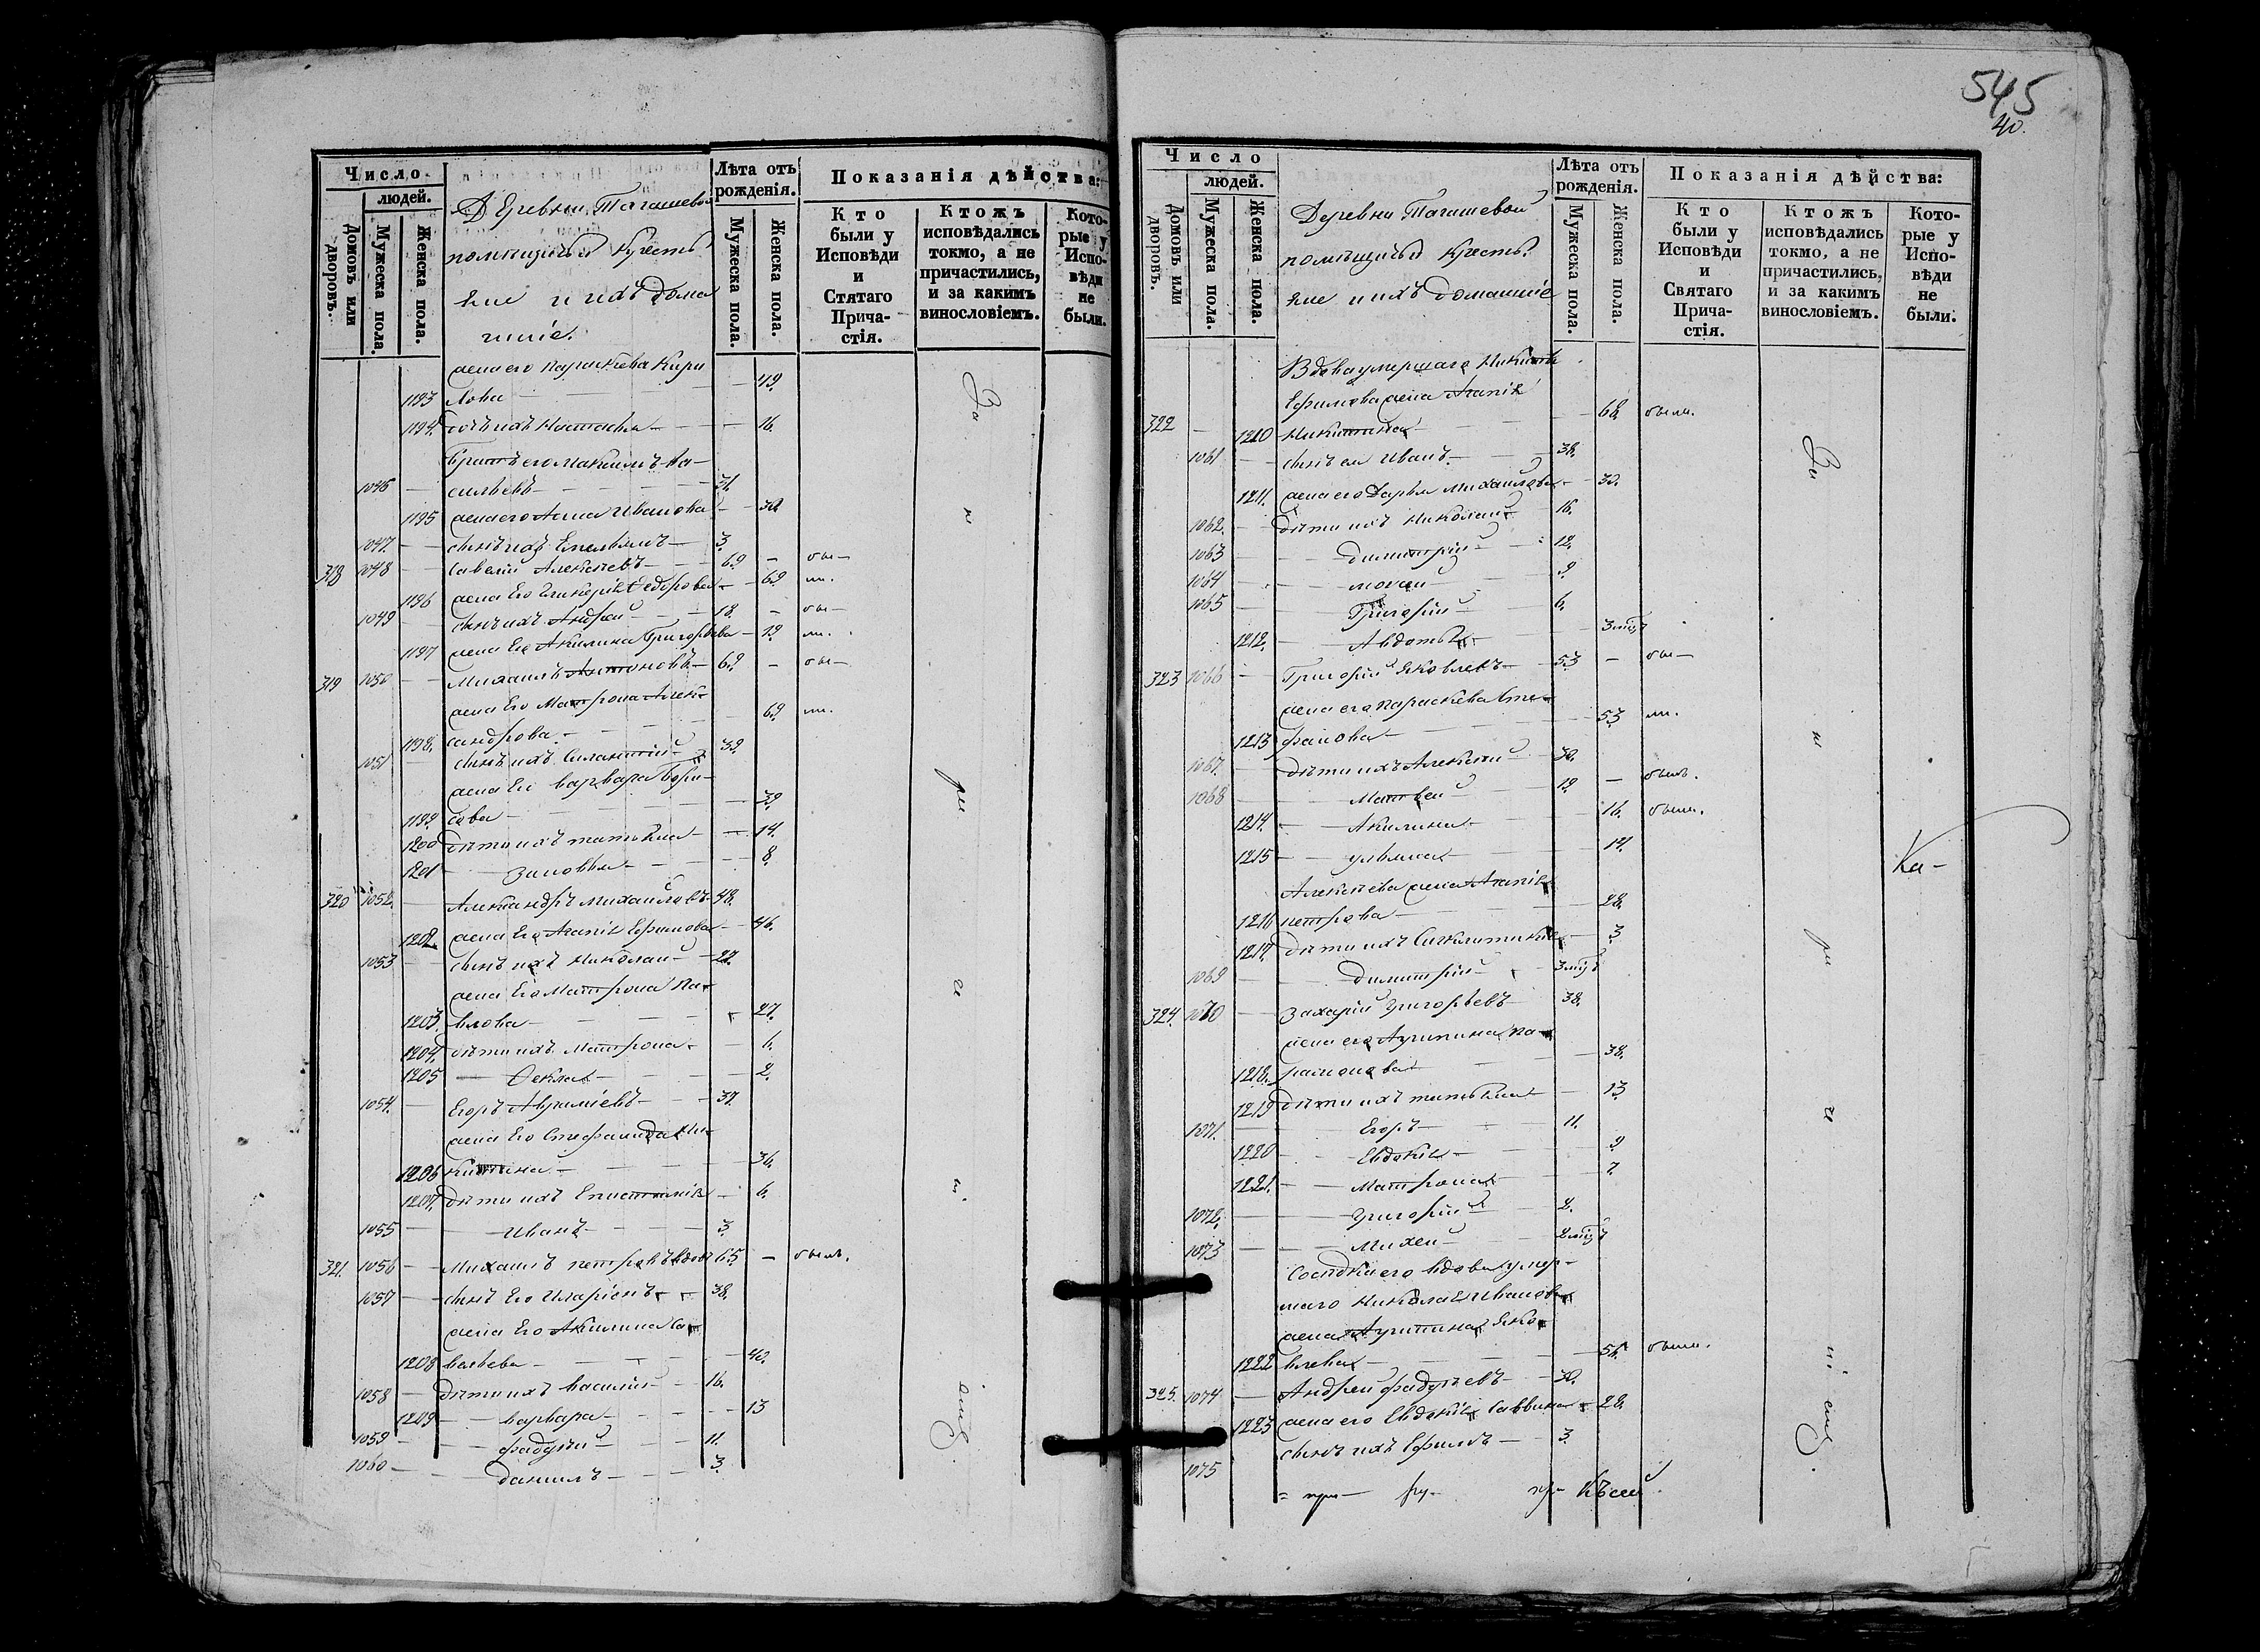 545
40.
Число
людей.
Домовъ или дворовъ.
Мужеска пола.
Женска пола.
Деревни Тагашевой
помѣщичьи кресть
яне и ихъ дома
шніе.
Лѣта отъ рожденія.
Мужеска пола.
Женска пола.
Показанія дѣйства:
Кто были у Исповѣди и Стятаго Прича-стія.
Ктожъ исповѣдались токмо, а не причастились, и за какимъ винословіемъ.
Кото-рые у Испо-вѣди не были.
жена его Параскева Кири
1193 лова — 49.
1194. дочь ихъ Настасья — 16.
Братъ его Максимъ Ва-
1046 сильевъ — 31.
1195 жена его Анна Иванова — 30.
1047. сынъ ихъ Емельянъ — 3.
318 1048 Савелій Алексѣевъ — 69 — бы-
1196 жена Его Гликерія Ѳедорова — 69 ли.
1049 сынъ ихъ Андрей — 18. — бы-
1197 жена Его Акилина Григорьева — 19. ли.
319 1050 Михаилъ Антоновъ — 69. — бы-
жена Его Матрона Алек-
1198. сандрова — 69. ли.
1051 сынъ ихъ Силантій — 39.
жена Его Варвара Бори-
1199. сова — 39.
1200 дѣти ихъ татьяна — 14.
1201 Зиновья — 8.
320 1052. Александръ Михайловъ — 48.
1202. жена Его Агапія Ефимова — 46.
1053 сынъ ихъ Николай — 27.
жена Его Матрона Па-
1203. влова — 27.
1204. дѣти ихъ Матрона — 6.
1205 Ѳекла — 2.
1054. Егоръ Авраміевъ — 37.
жена Его Стефанида Ни-
1206 китина — 36.
1207. дѣти ихъ Епистимія — 6.
1055 Иванъ — 3.
321. 1056 Михаилъ Петровъ вдовъ 65. — былъ.
1057 сынъ Его Иларіонъ — 38.
жена Его Акилина Са-
1208 вельева — 40.
1058 дѣти ихъ Василій — 16.
1209 Варвара — 13
1059 Фадѣй — 11.
1060 Даниилъ — 3.
Число
людей.
Домовъ или дворовъ.
Мужеска пола.
Женска пола.
Деревни Тагашевой
помѣщичьи кресть
яне и ихъ домашніе
Лѣта отъ рожденія.
Мужеска пола.
Женска пола.
Показанія дѣйства:
Кто были у Исповѣди и Святаго Прича-стія.
Ктожъ исповѣдались токмо, а не причастились, и за какимъ винословіемъ.
Кото-рые у Испо-вѣди не были.
Вдова умершаго Никиты
Ефимова жена Агапія
322 1210 Никитина — 68. была.
1061 сынъ ея Иванъ — 38.
1211. жена его Дарья Михайлова — 30.
1062. дѣти ихъ Николай — 16.
1063 Димитрій — 12.
1064 Моисей — 9
1065 Григорій — 6.
1212. Авдотья — 3 мѣс
323 1066 Григорій Яковлевъ — 53 — бы-
жена его Параскева Сте-
1213 фанова — 53 ли.
1067. дѣти ихъ Алексѣй — 30.
1068 Матвей — 19. — былъ.
1214. Акилина — 16. была.
1215 ульяна — 14.
Алексѣева жена Агапія
1216 петрова — 28.
1217. дѣти ихъ Сигклитикія — 3.
1069 Димитрій — 3 мѣс
324. 1070 Захарій Григорьевъ — 38.
жена его Агрипина Па-
1218. рамонова — 38.
1219 дѣти ихъ татьяна — 13.
1071. Егоръ — 11.
1220 Евдокія — 9
1221. Матрона — 7.
1072. Григорій — 2.
1073 Михей — 2 мѣс
Сосѣдка его вдова умер-
шаго Николая Иванова
жена Агрипина Яко-
1222 влева — 56. была.
325. 1074 Андрей Фадѣевъ — 30.
1223 жена его Евдокія Саввина — 28.
1075 сынъ ихъ Ефимъ — 3.
Ка-